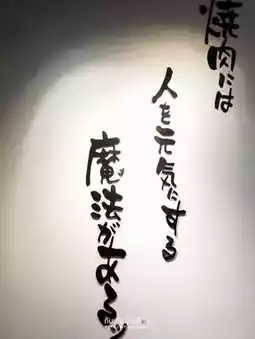 焼肉には
人を元気にする
魔法がある